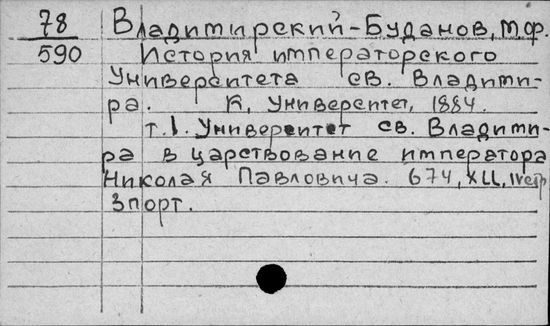 78 Владимирский-Буданов, М.Ф.
590 История императорского
Университета св. Владими-
ра. К, Университет, 1884.
т.1. Университет св. Владими-
ра в царствование императора
Николая Павловича. 674, XLL, IV стр
3 порт.